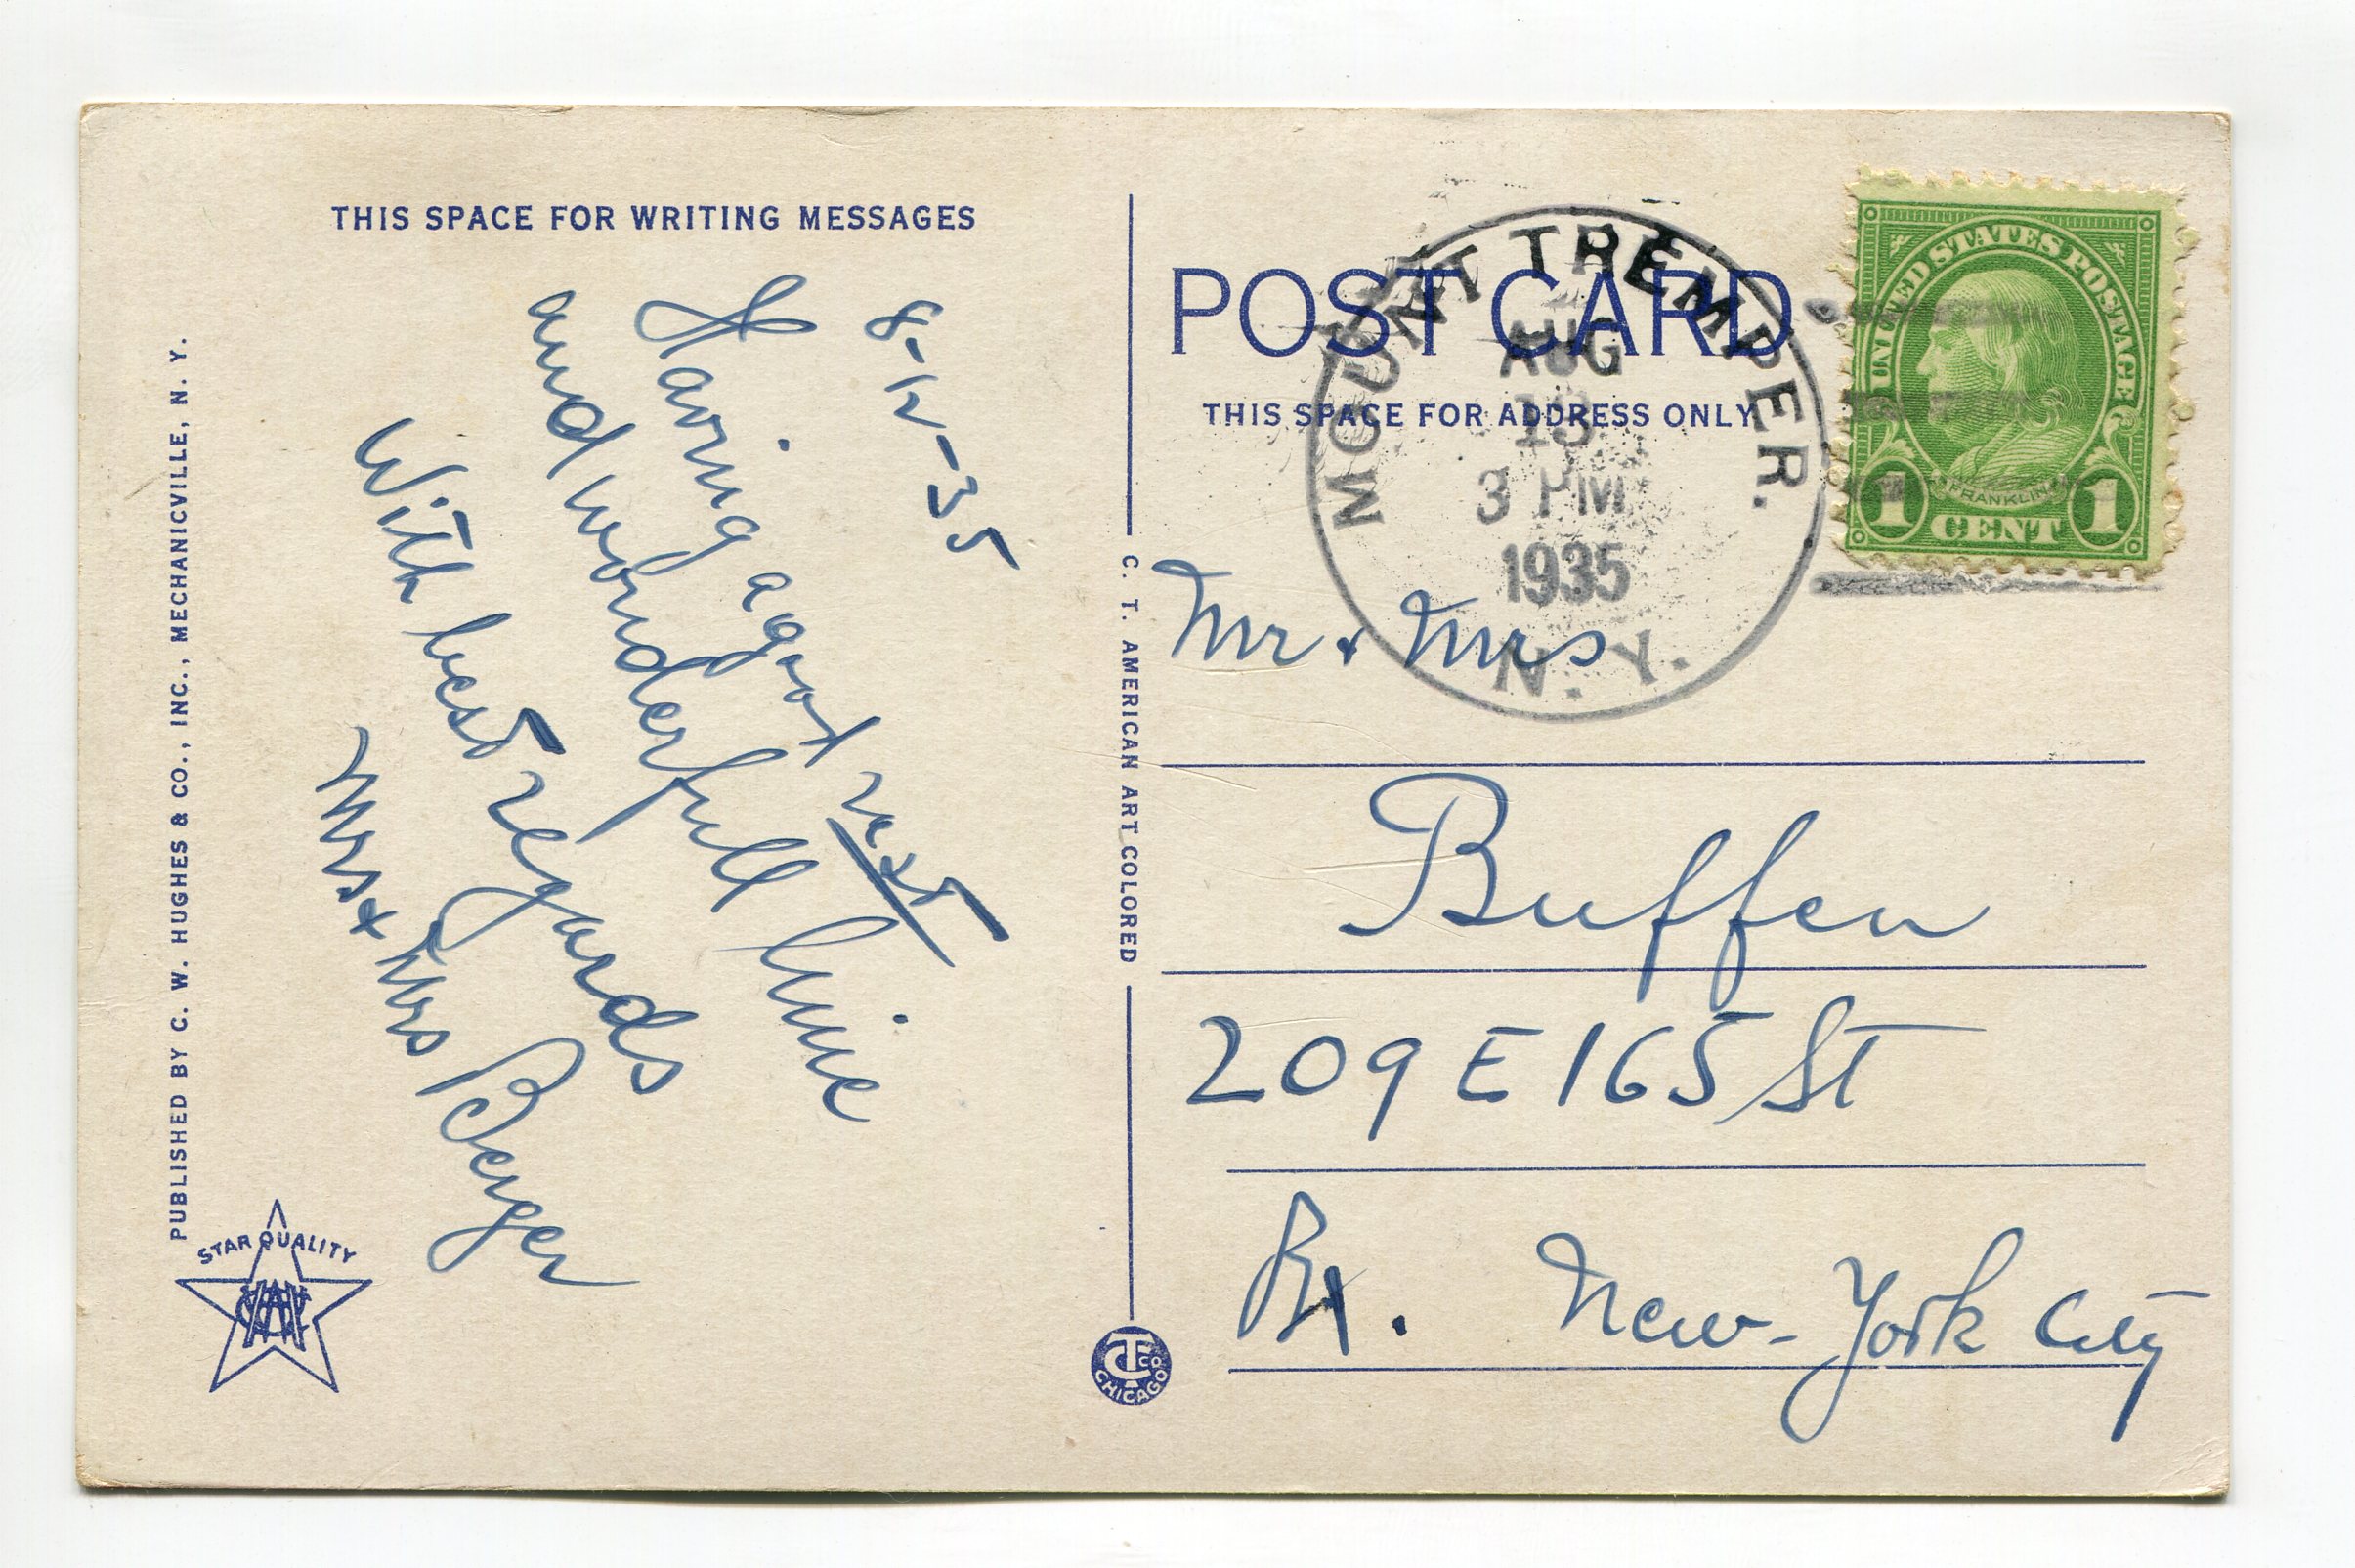 THIS SPACE FOR WRITING MESSAGES
8-12-35
Having a good rest
and wonderfull time
With best regards
Mr & Mrs Berger
PUBLISHED BY C. W. HUGHES & CO., INC., MECHANICVILLE, N. Y.
STAR QUALITY
C. T. AMERICAN ART COLORED
CT CO. CHICAGO
POST CARD
THIS SPACE FOR ADDRESS ONLY
MOUNT TREMPER.
AUG
13
3 PM
1935
N. Y.
UNITED STATES POSTAGE
FRANKLIN
1 CENT 1
Mr & Mrs
Buffen
209 E 165 St
Bx. New-York City